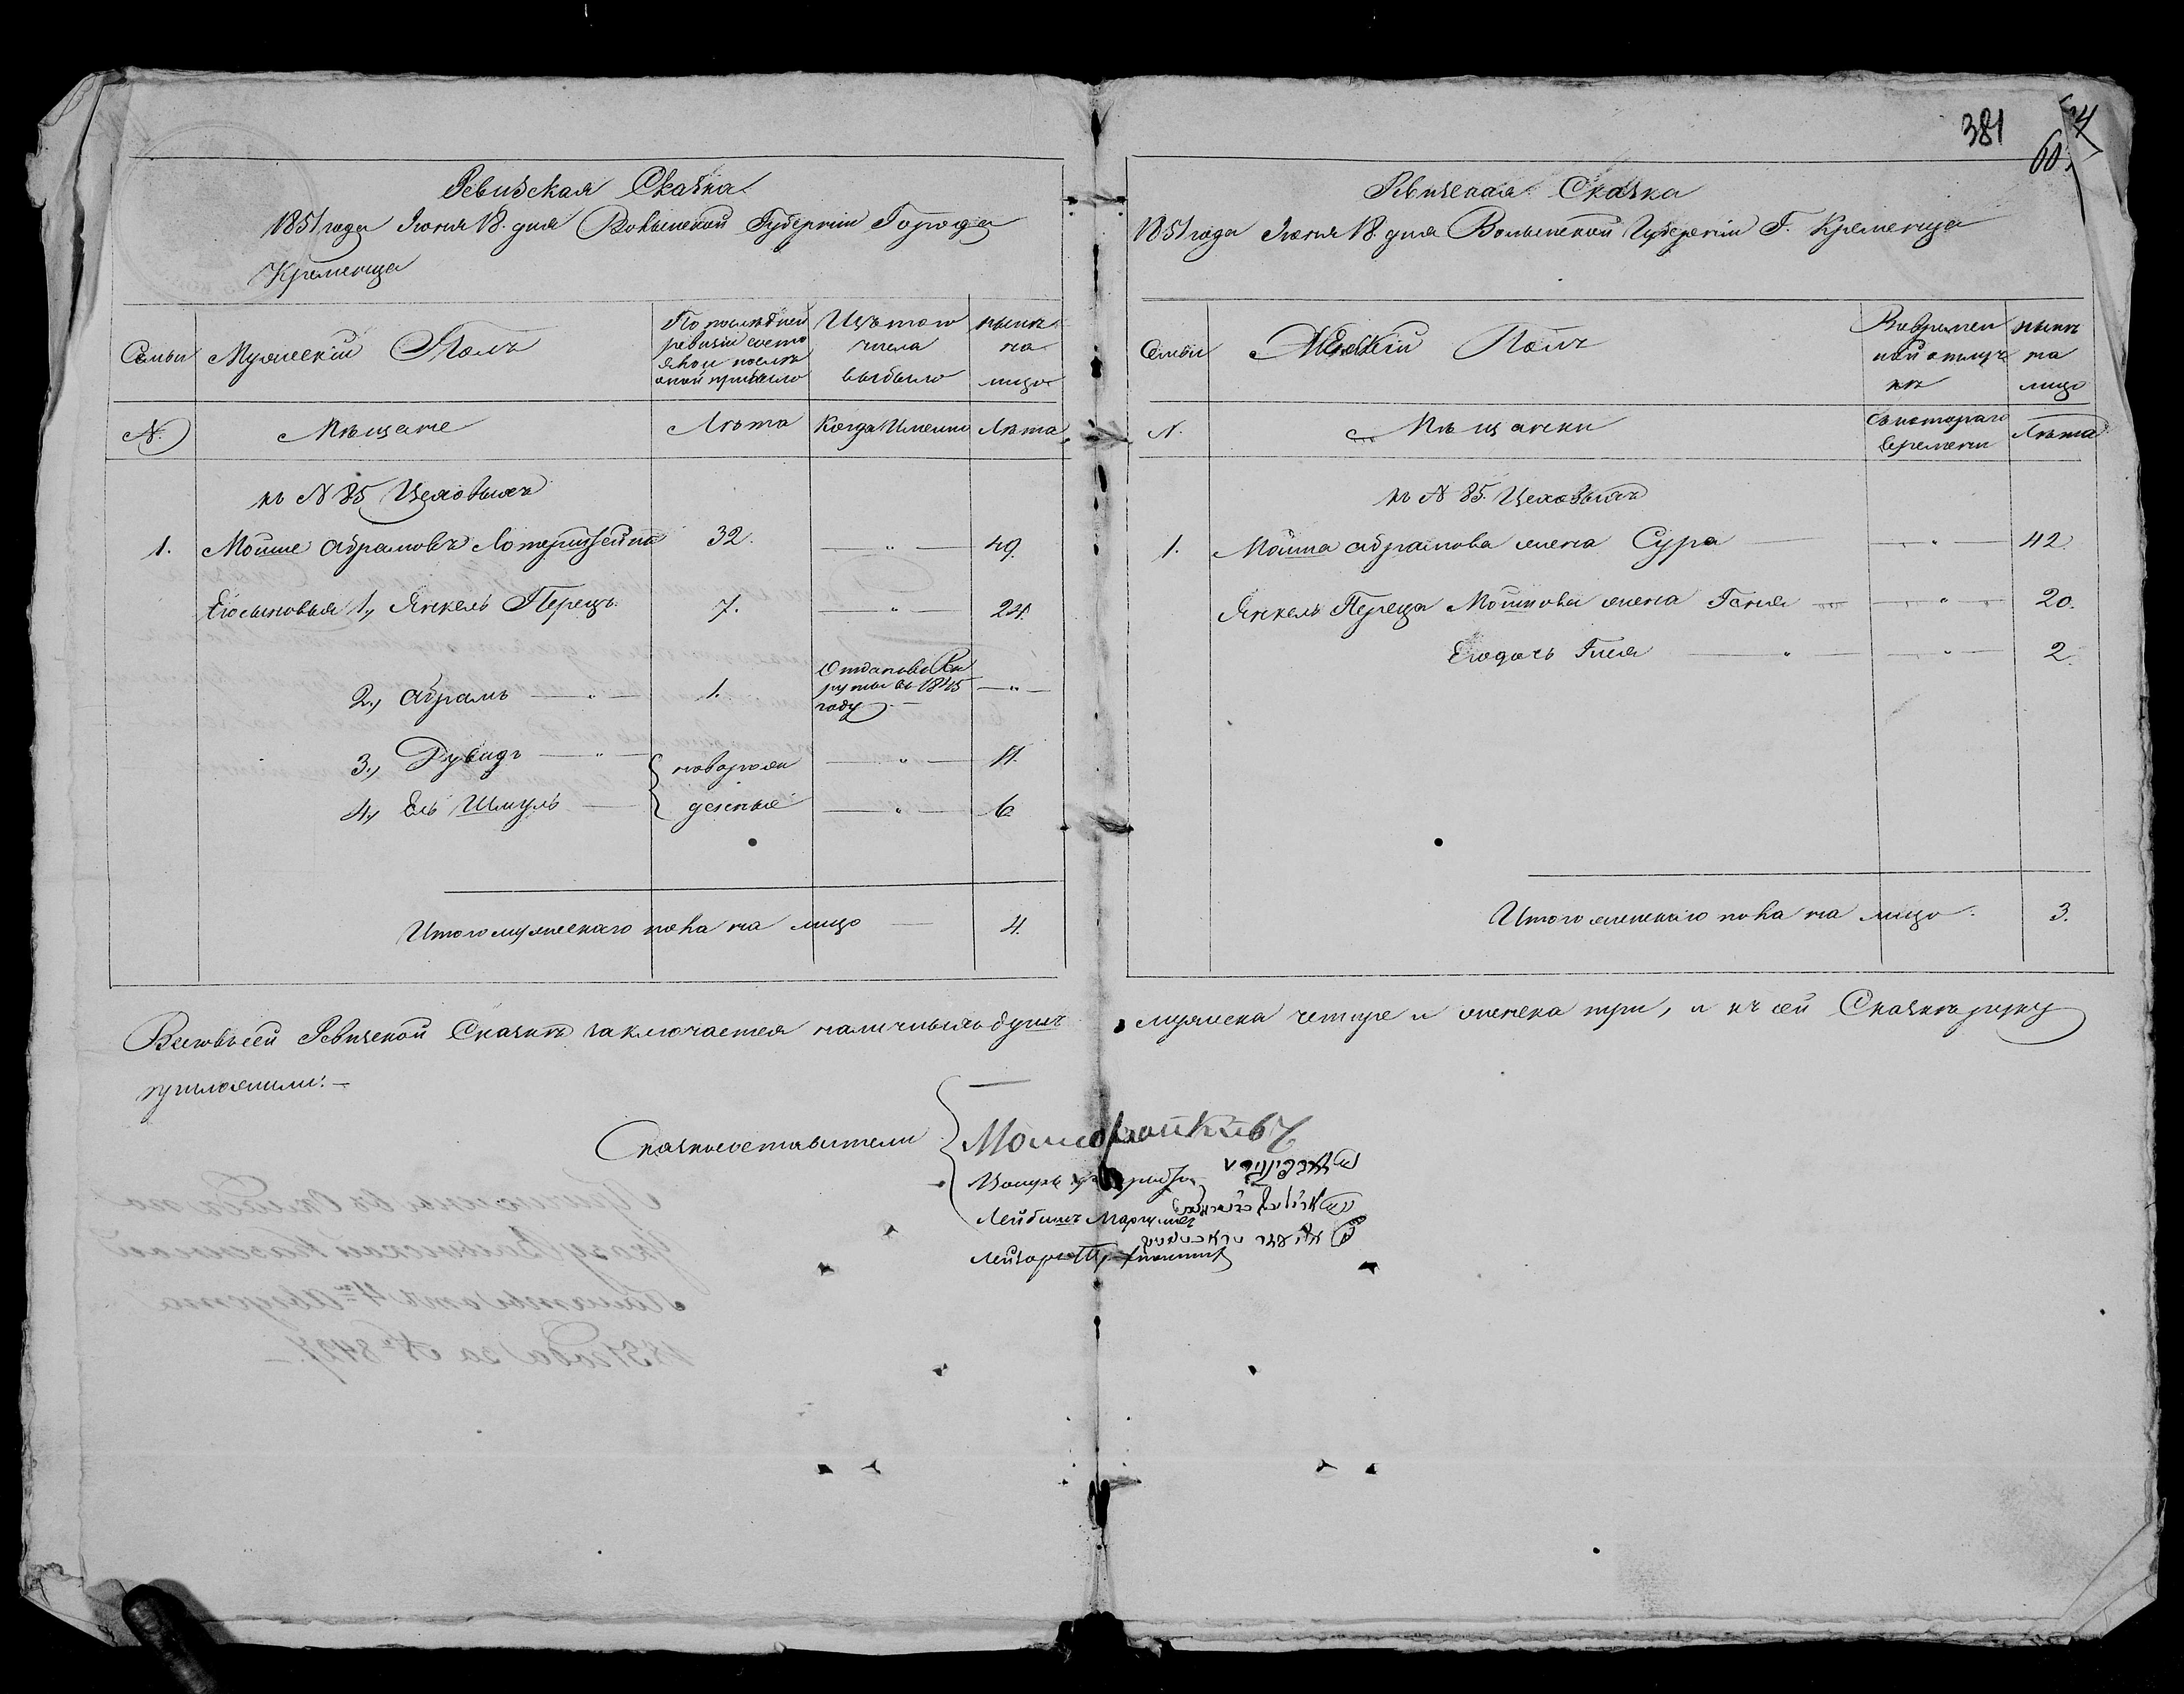 381
Ревизская Сказка
1851 года Июня 18. дня Волынской Губерніи Города
Кременца
Семьи
Мужескій Полъ
По последней
ревизіи состо
яло и после
оной прибыло
Изъ того
числа
выбыло
ныне
на
лицо
N.
Мѣщане
Лѣта
Когда Именно
Лѣта
къ N 85 Цеховыхъ
1. Мошко Абрамовъ 32. — „ — 49.
Его сыновья 1., Янкель Перецъ. 7. — „ — 24.
2., Абрамъ — „ — 1. Отданъ въ Рек
руты въ 1845 — „ —
году —
3., Дувидъ — „ — новорож — „ — 11.
4., Ель Шмуль — денные — „ — 6
Итого мужескаго пола на лицо — 4.
Ревизская Сказка
1851 года Июня 18. дня Волынской Губерніи Г. Кременца
Семьи
Женскій Полъ
Во времен
ной отлуч
кѣ
ныне
на
лицо
N.
Мѣщанки
Съ котораго
времени
Лѣта
къ N 85. Цеховыхъ
1. Мошка Абрамова жена Сура — „ — 42.
Янкель Переца Мошкова жена Геня — „ — 20.
Его дочь Гися — „ — „ — 2.
Итого женскаго пола на лицо. 3.
Всего въ сей Ревизской Сказкѣ заключается наличныхъ душъ мужеска четыре и женска три, и къ сей Сказкѣ руку
приложили: —
Сказкосоставители
Лейбишъ Маргулисъ